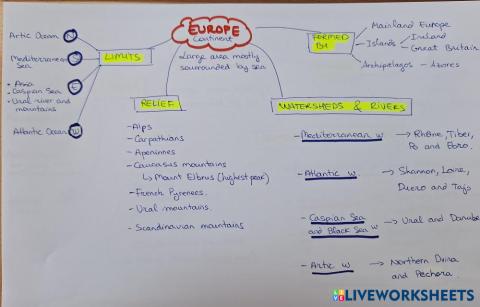 EUROPE
Continent
Large area mostly
sourrounded by sea
LIMITS
Artic Ocean N
Mediterranean S
Sea
• Asia
• Caspian Sea E
• Ural river and
mountains
Atlantic Ocean W
FORMED
BY
Mainland Europe
Islands
Ireland
Great Britain
Archipelagos - Azores
RELIEF
- Alps
- Carpathians
- Apeninnes
- Caucasus mountains
↳ Mount Elbrus (highest peak)
- French Pyrenees.
- Ural mountains.
- Scandinavian mountains
WATERSHEDS & RIVERS
- Mediterranean W → Rhône, Tiber,
Po and Ebro.
- Atlantic W. → Shannon, Loire,
Duero and Tajo
- Caspian Sea
and Black Sea W → Ural and Danube
- Artic W → Northern Dvina
and Pechora.
LIVEWORKSHEETS